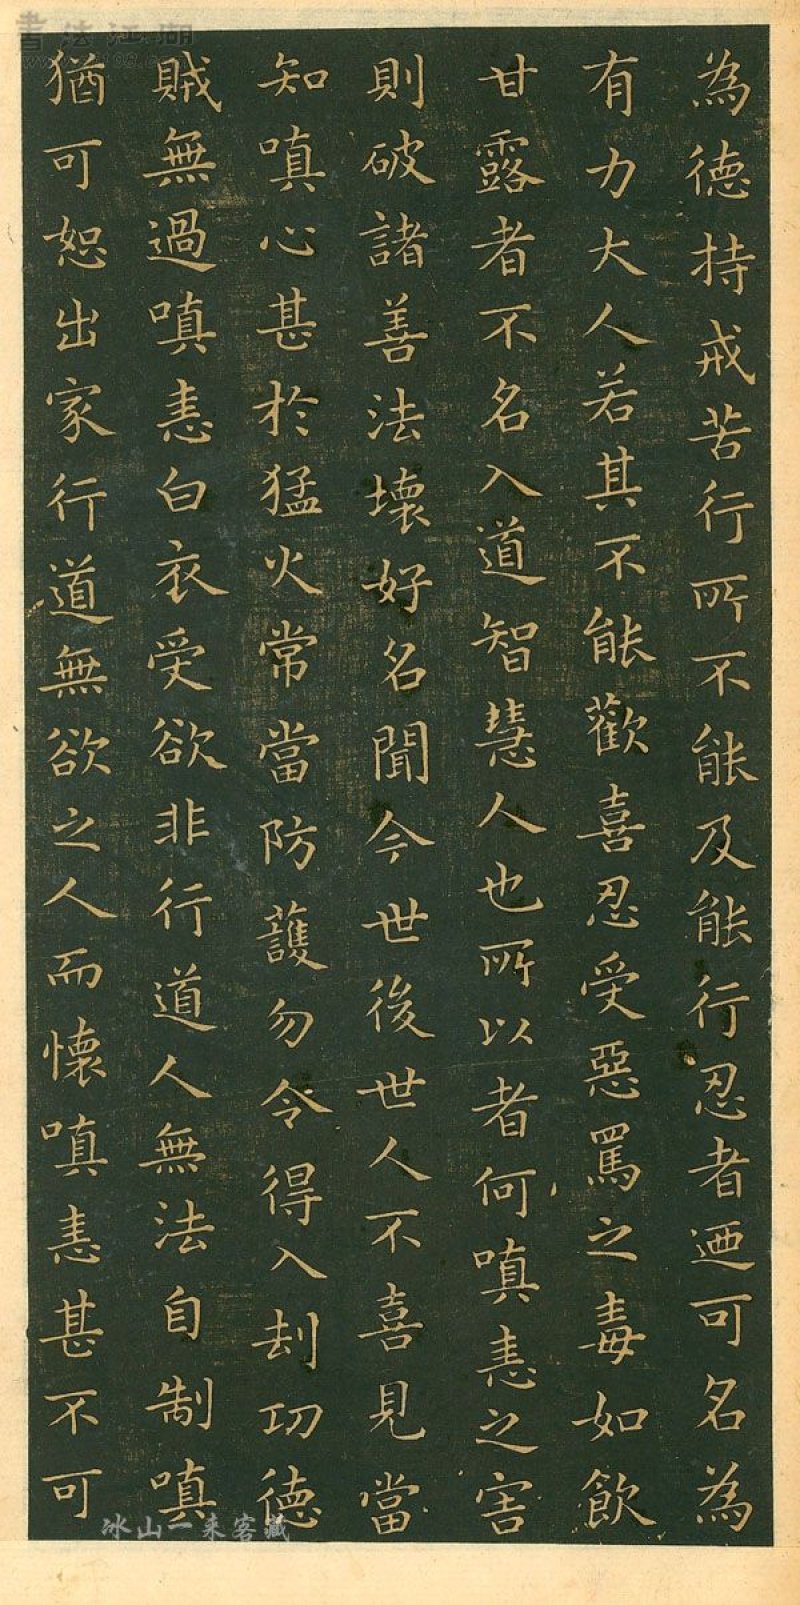 為德持戒苦行所不能及能行忍者迺可名為
有力大人若其不能歡喜忍受惡罵之毒如飲
甘露者不名入道智慧人也所以者何嗔恚之害
則破諸善法壞好名聞今世後世人不喜見當
知嗔心甚於猛火常當防護勿令得入刦功德
賊無過嗔恚白衣受欲非行道人無法自制嗔
猶可恕出家行道無欲之人而懷嗔恚甚不可
書法江湖
冰山一来客藏